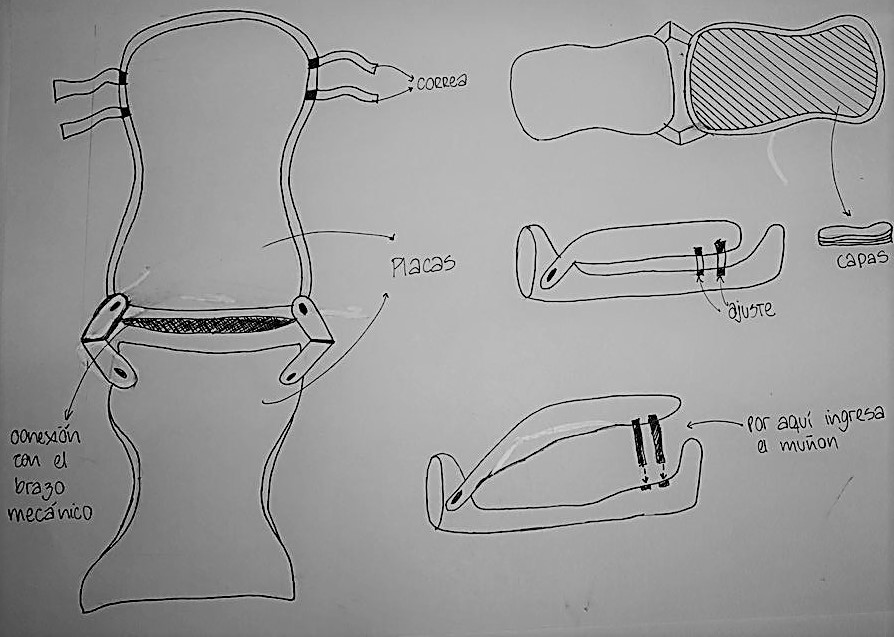 correa
Placas
conexión
con el
brazo
mecánico
capas
ajuste
por aquí ingresa
el muñon